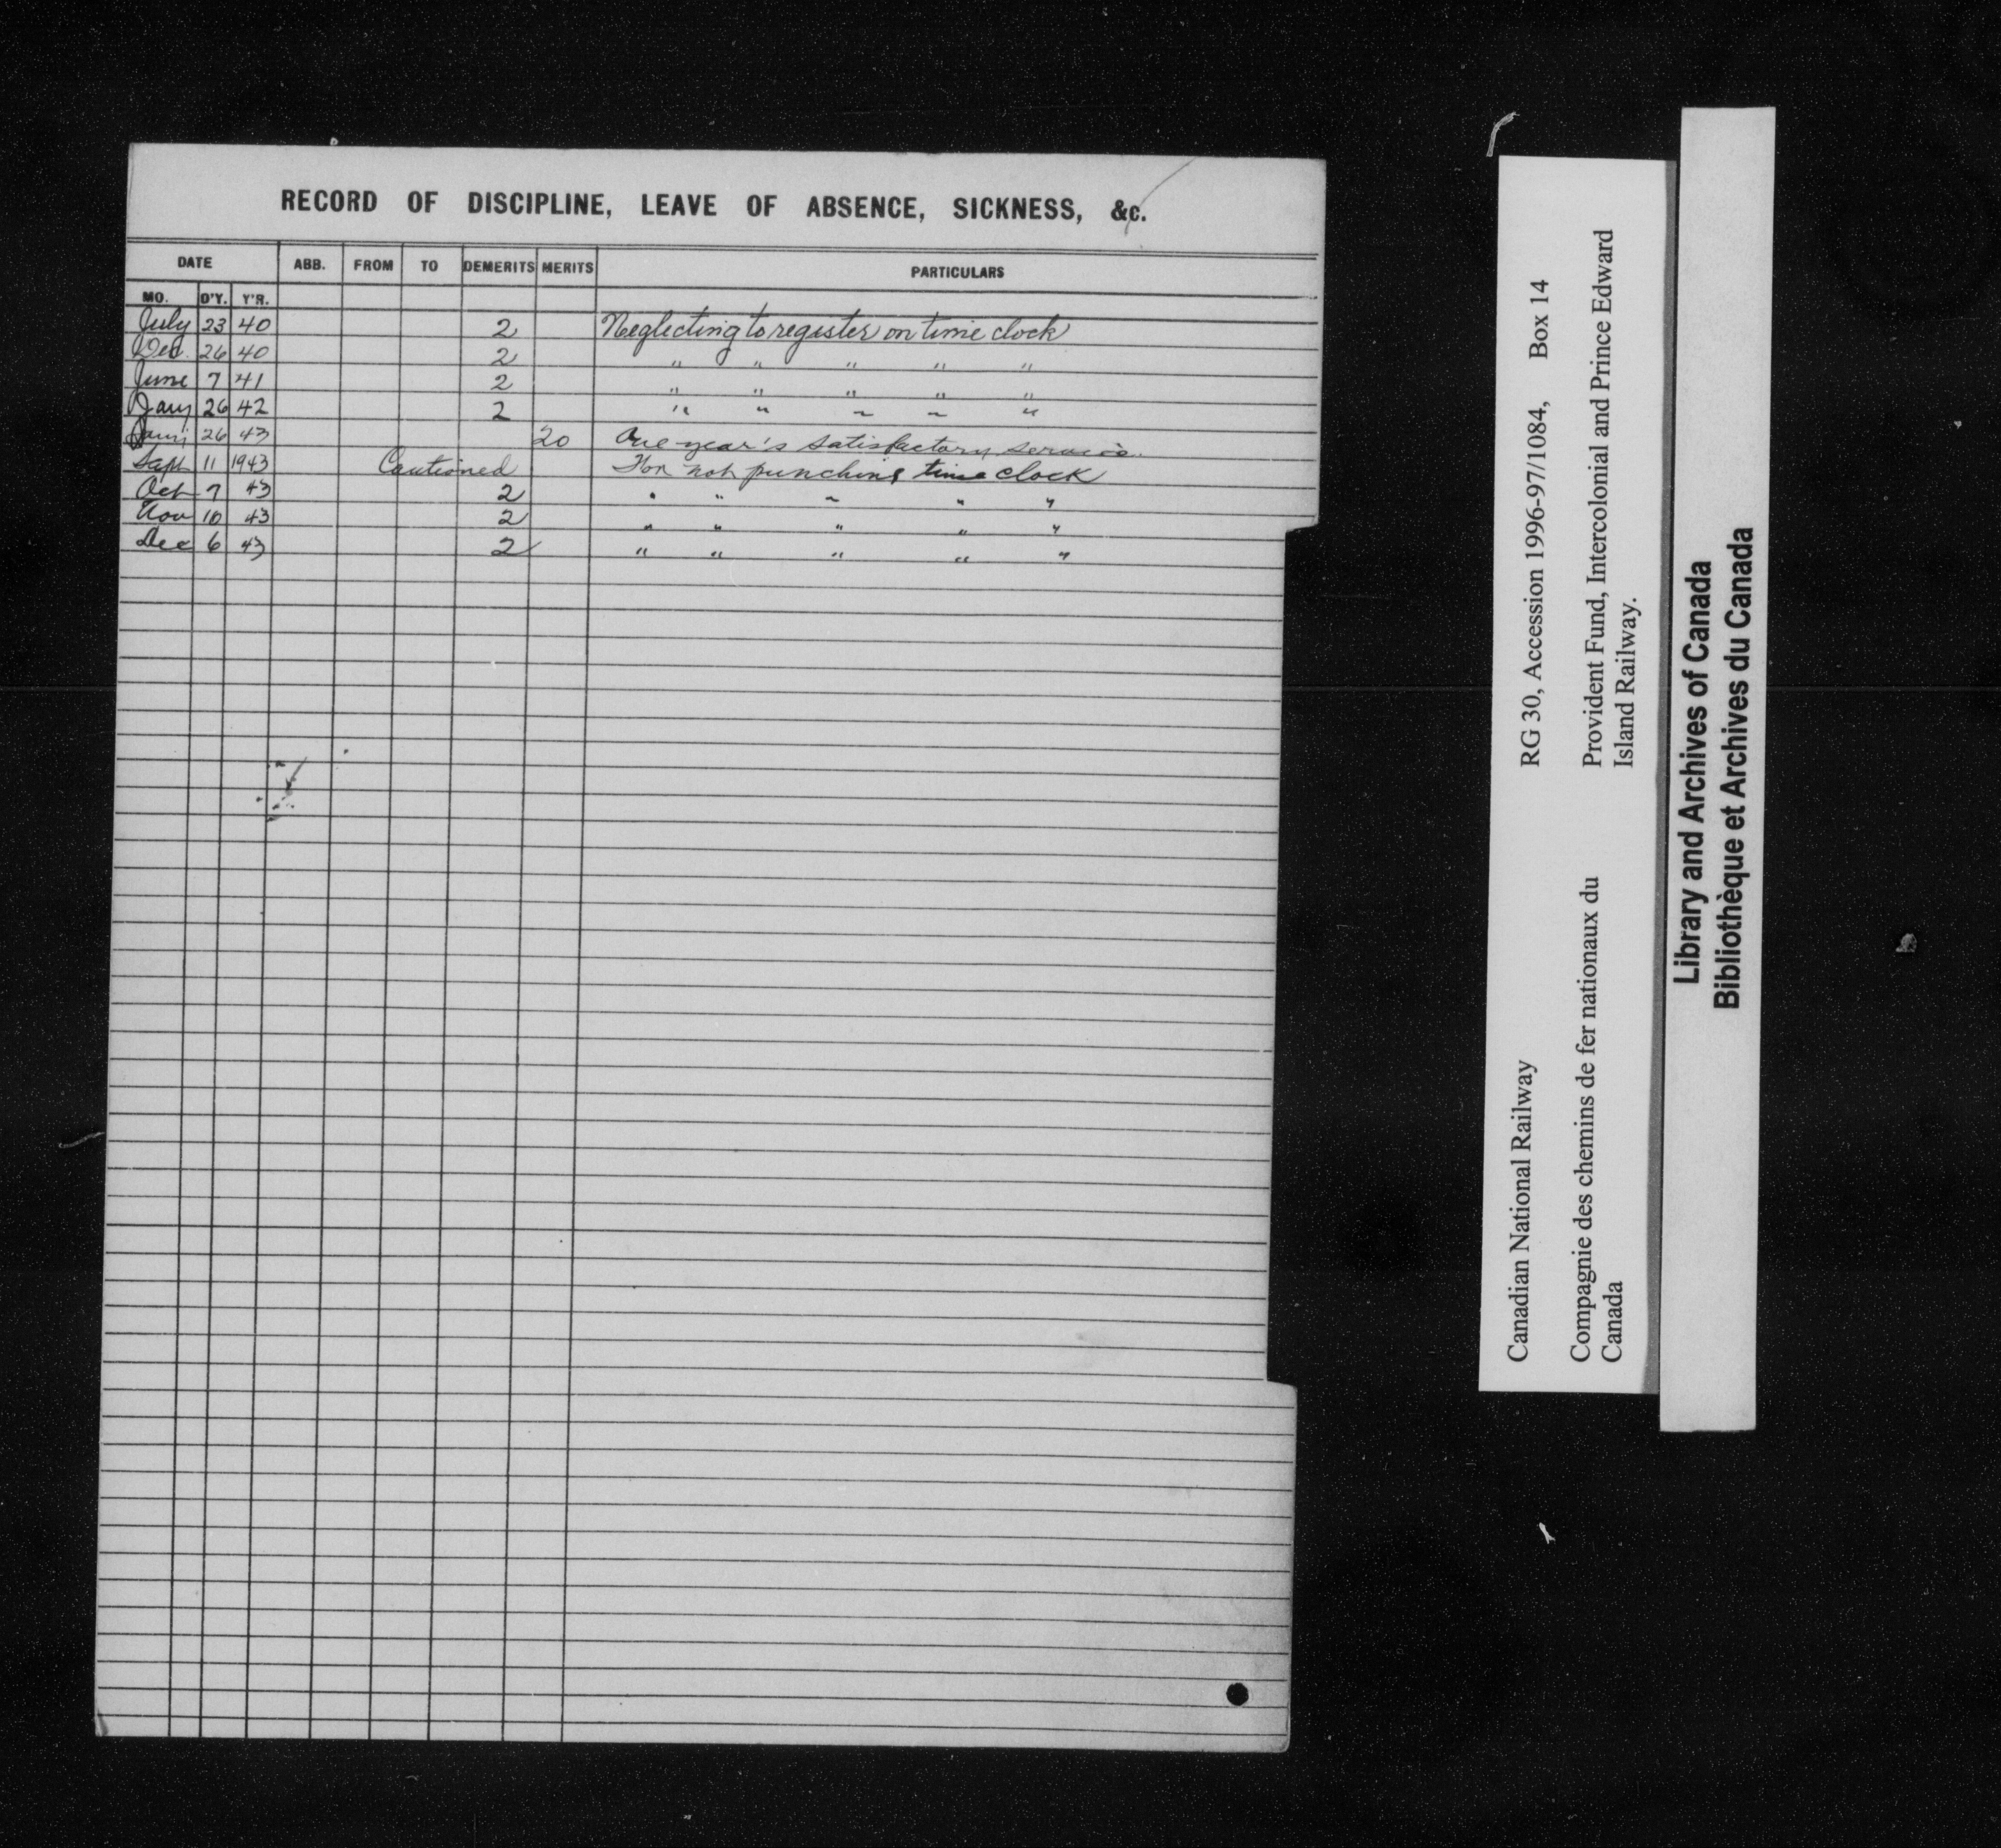 RECORD OF DISCIPLINE, LEAVE OF ABSENCE, SICKNESS, &c.
DATE ABB. FROM TO DEMERITS MERITS PARTICULARS
MO. D'Y. Y'R.
July 23 40 2 Neglecting to register on time clock
Dec. 26 40 2 " " " " "
June 7 41 2 " " " " "
Jany 26 42 2 " " " " "
Jany 26 43 20 One year's satisfactory service.
Sept 11 1943 Cautioned For not punching time clock
Oct 7 43 2 " " " " "
Nov 10 43 2 " " " " "
Dec 6 43 2 " " " " "
Canadian National Railway RG 30, Accession 1996-97/1084, Box 14
Compagnie des chemins de fer nationaux du Provident Fund, Intercolonial and Prince Edward
Canada Island Railway.
Library and Archives of Canada
Bibliothèque et Archives du Canada